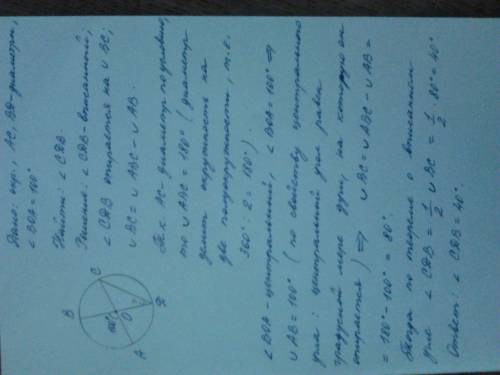 Дано: окр., AC, BD-диаметры,
∠BOA = 100°
Найти: ∠CDB.
Решение: ∠CDB-вписанный,
∠CDB опирается на ∪BC;
∪BC = ∪ABC - ∪AB.
Т.к. AC-диаметр по условию,
то ∪ABC = 180° (диаметр
делит окружность на
две полуокружности, т.е.
360° : 2 = 180°).
B
C
100°
O
A
D
∠BOA-центральный, ∠BOA = 100° ⇒
∪AB = 100° (по свойству центрального
угла: центральный угол равен
градусной мере дуги, на которую он
опирается) ⇒ ∪BC = ∪ABC - ∪AB =
= 180° - 100° = 80°.
Тогда по теореме о вписанном
угле ∠CDB = 1/2 ∪BC = 1/2 · 80° = 40°.
Ответ: ∠CDB = 40°.